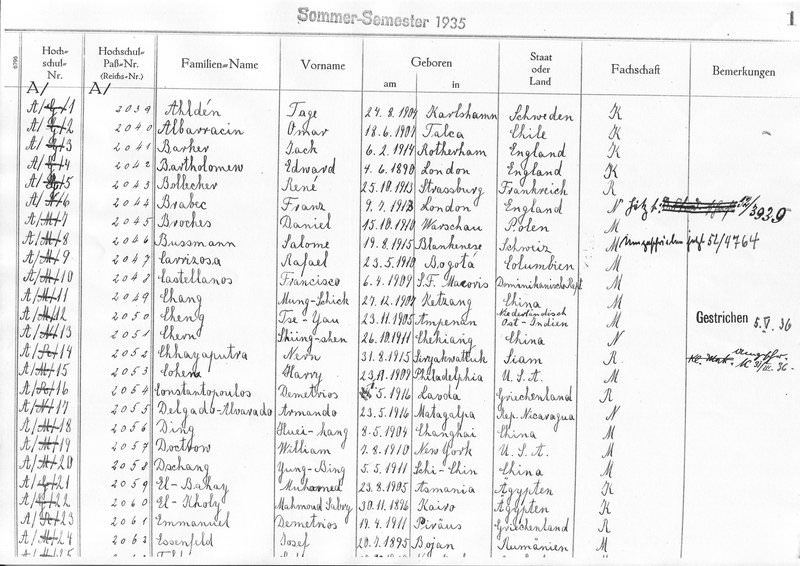 Sommer-Semester 1935
1
6796
Hoch-schul-Nr. Hochschul-Paß-Nr. (Reichs-Nr.) Familien-Name Vorname Geboren am in Staat oder Land Fachschaft Bemerkungen
A/ A/
A/1 2039 Ahldén Tage 24.8.1904 Karlshamn Schweden K
A/2 2040 Albarracin Omar 18.6.1907 Talca Chile K
A/3 2041 Barker Jack 6.2.1914 Rotherham England K
A/4 2042 Bartholomew Edward 4.6.1890 London England K
A/5 2043 Bollecker René 25.10.1913 Strassburg Frankreich R
A/6 2044 Brabec Franz 9.7.1913 London England N 3929
A/7 2045 Broches Daniel 15.10.1910 Warschau Polen M
A/8 2046 Bussmann Salome 19.8.1915 Blankenese Schweiz M Umgeschrieben 52/4764
A/9 2047 Carrizosa Rafael 23.5.1910 Bogotá Columbien M
A/10 2048 Castellanos Francisco 6.9.1909 S.F. Macoris Dominikanische Rep. M
A/11 2049 Chang Mung-Schick 27.12.1907 Ketzang China M
A/12 2050 Cheng Tse-Yau 23.11.1905 Ampenan Niederländisch Ost-Indien M Gestrichen 5.V.36
A/13 2051 Chern Shiing-shen 26.10.1911 Chekiang China N
A/14 2052 Chhayaputra Nern 31.8.1915 Siam R
A/15 2053 Cohen Harry 23.11.1909 Philadelphia U.S.A. M
A/16 2054 Constantopoulos Demetrios 5.1916 Griechenland R
A/17 2055 Delgado-Alvarado Armando 23.5.1916 Matagalpa Rep. Nicaragua N
A/18 2056 Ding Huei-hang 8.5.1904 Changhai China M
A/19 2057 Doctrow William 7.8.1910 New York U.S.A. M
A/20 2058 Dschang Yung-Bing 5.5.1911 Schi-Chin China M
A/21 2059 El-Bahay Muhamed 23.8.1905 Asmania Ägypten K
A/22 2060 El-Kholy Mahmoud Sabry 30.11.1896 Kairo Ägypten K
A/23 2061 Emmanuel Demetrios 19.4.1911 Piräus Griechenland R
A/24 2063 Essenfeld Josef 20.7.1895 Bojan Rumänien M